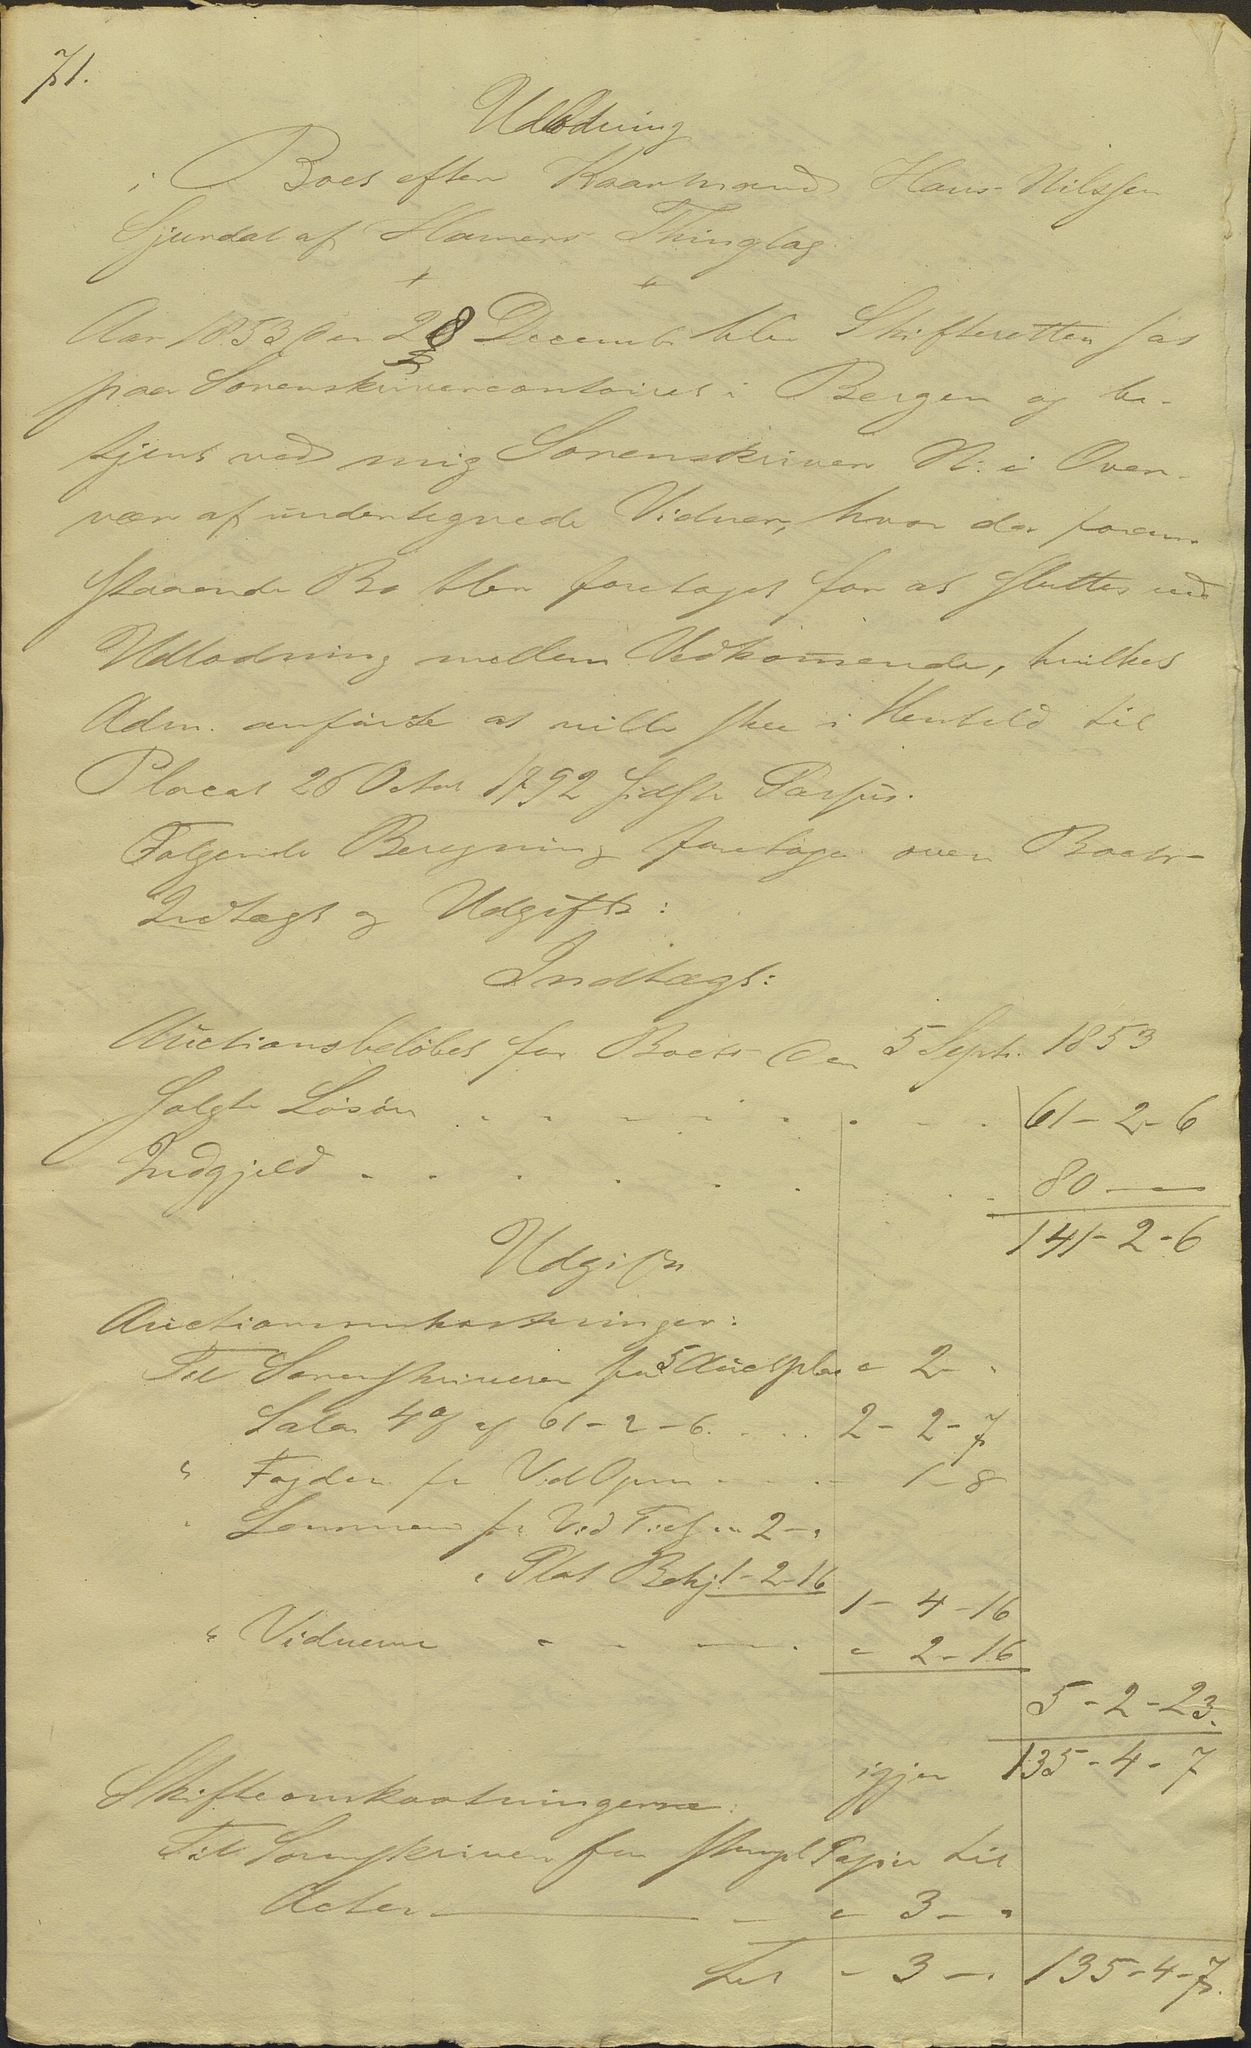 71.
Udlodning
i Boet efter Kaarmand Hans Nilssen
Sjurdal af Hamers Thinglag
Aar 1853 den 28 Decembr blev Skifteretten sat
paa Sorenskrivercontoiret i Bergen og be-
tjent ved mig Sorenskriver N: i Over-
vær af undertegnede Vidner, hvor da foran-
staaende Bo blev foretaget for at sluttes ved
Udlodning mellem Vedkommende, hvilket
Adm. anførte at ville skee i Henhold til
Placat 26 Octbr 1792 sidste Passus.
Følgende Beregning foretoges over Boets
Indtægt og Udgift:
Indtægt:
Auctionsbeløbet for Boets den 5 Septr. 1853
solgte Løsøre 61-2-6
Indgjeld 80 —
141-2-6
Udgift
Auctionsomkostninger:
Til Sorenskriveren for 5 Auctspl " 2 - "
Salær 4% af 61-2-6. 2-2-7
" Fogden for 1-8
" Lensmand for 2 - "
" 1-2-16
1-4-16
" Vidnerne " 2-16
5-2-23.
igjen 135-4-7
Skifteomkostningerne:
Til Sorenskriveren for stempl Papir til
Acten " 3 - "
Lat - 3 - " 135-4-7.